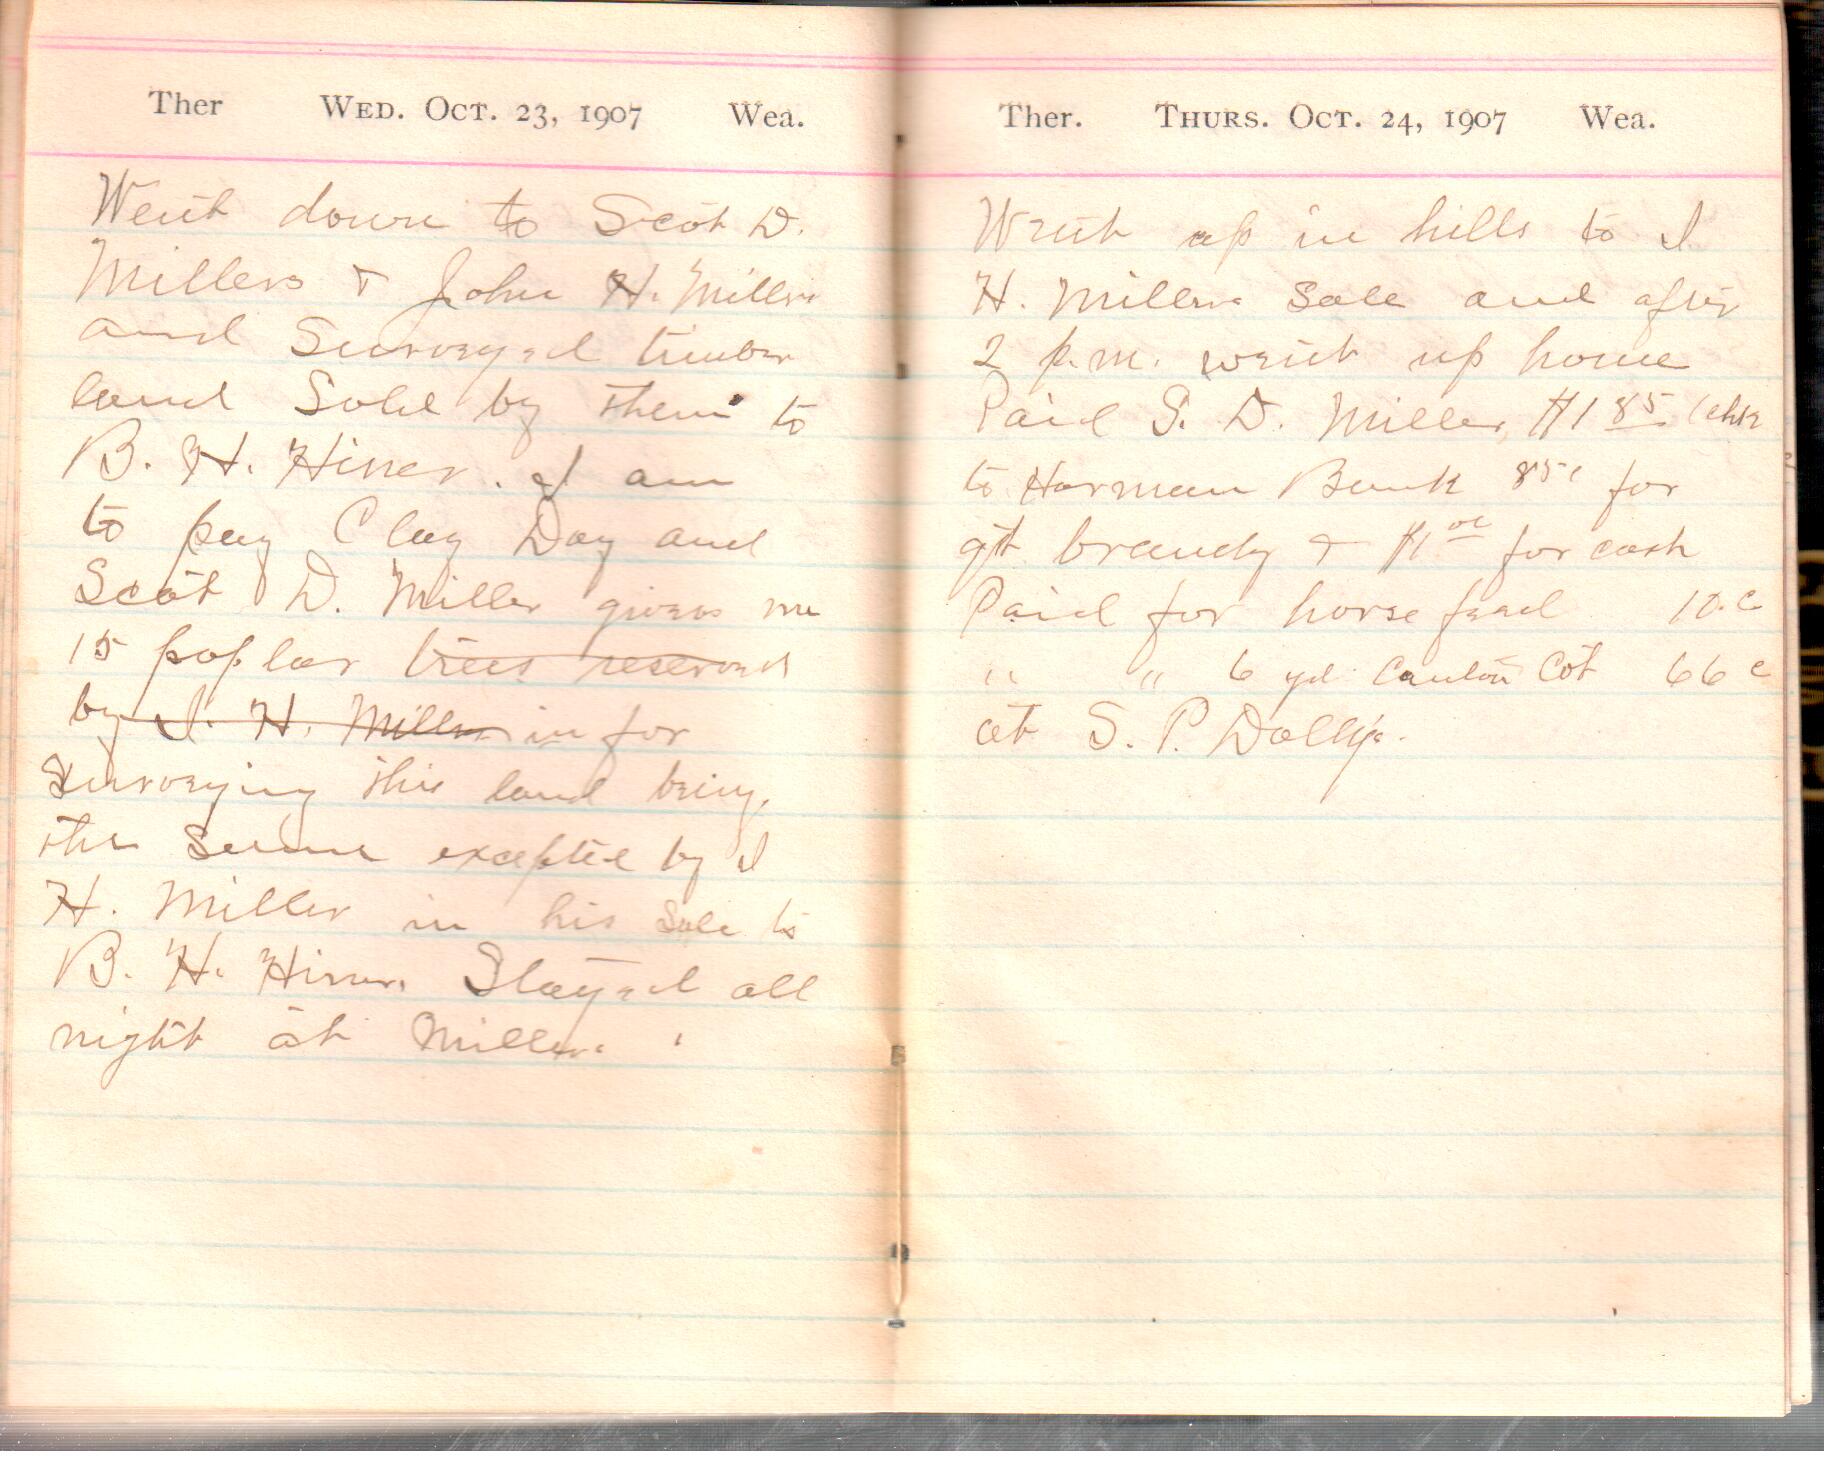 Ther Wed. Oct. 23, 1907 Wea.
Went down to Scot D.
Millers & John H. Millers
and Surveyed timber
land Sold by them to
B. H. Hiner. I am
to pay Clay Day and
Scot D. Miller gives me
15 poplar trees reserved
by I. H. Miller in for
Surveying this land being
the same excepted by I
H. Miller in his Sale to
B. H. Hiner. Stayed all
night at Millers.
Ther. Thurs. Oct. 24, 1907 Wea.
Went up in hills to I
H. Millers Sale and after
2 p.m. went up home
Paid S. D. Miller $1 85 (chk
to Harman Bank 85c for
qt brandy & $1 00 for cash
Paid for horse feed 10 c
" " 6 yd Canton Cot 66 c
at S. P. Dolly's.